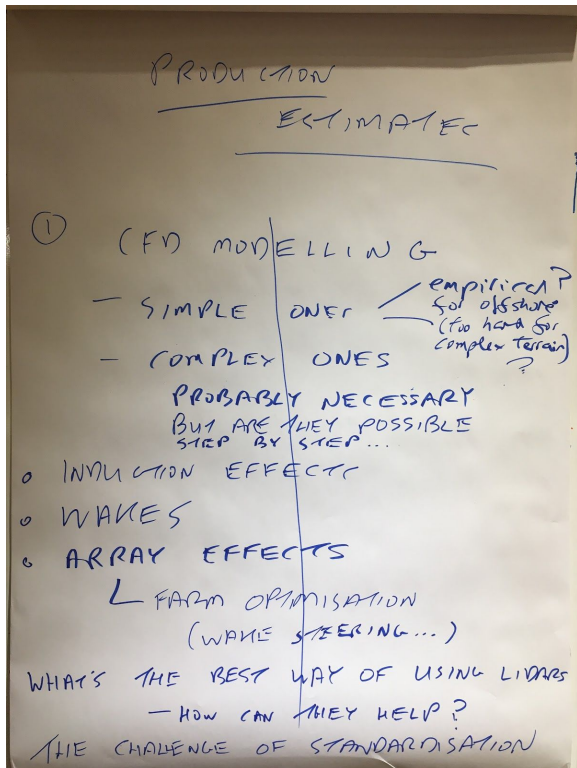 PRODUCTION
ESTIMATES
①
CFD MODELLING
- SIMPLE ONES
empirical?
for offshore
(too hard for
complex terrain)
?
- COMPLEX ONES
PROBABLY NECESSARY
BUT ARE THEY POSSIBLE
STEP BY STEP...
o INDUCTION EFFECTS
o WAKES
o ARRAY EFFECTS
FARM OPTIMISATION
(WAKE STEERING...)
WHAT'S THE BEST WAY OF USING LIDARS
- HOW CAN THEY HELP?
THE CHALLENGE OF STANDARDISATION